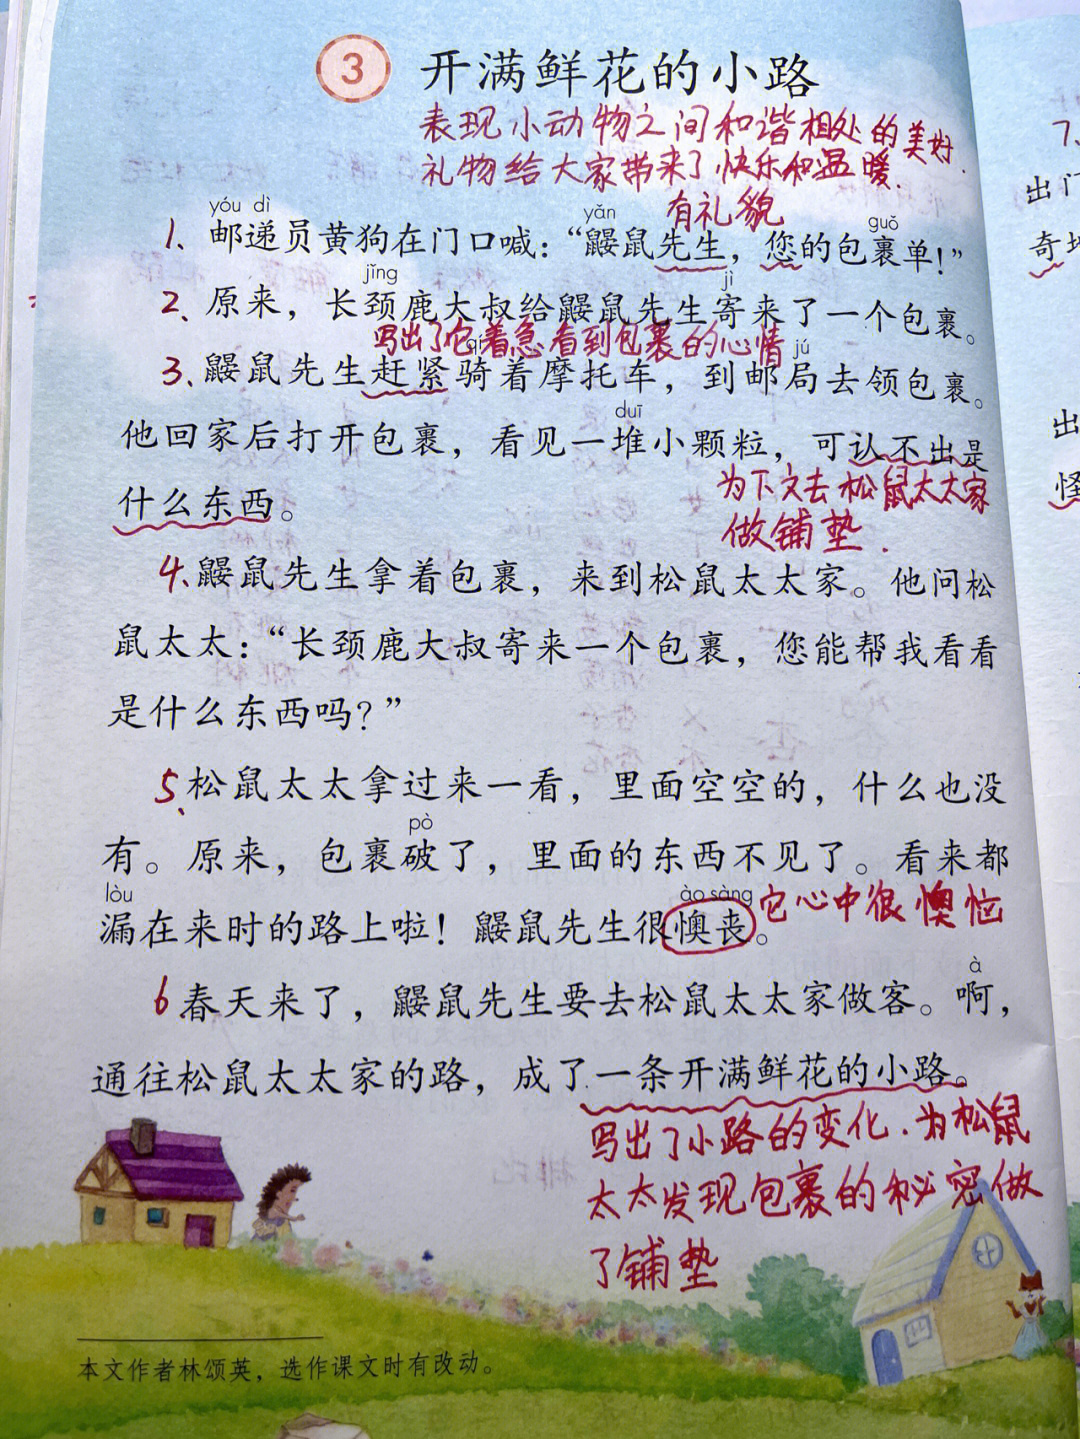 3 开满鲜花的小路
表现小动物之间和谐相处的美好.
礼物给大家带来了快乐和温暖.
有礼貌
yóu dì yǎn guǒ
1、邮递员黄狗在门口喊：“鼹鼠先生，您的包裹单！”
jǐng jì
2、原来，长颈鹿大叔给鼹鼠先生寄来了一个包裹。
写出了它着急看到包裹的心情
qí jú
3、鼹鼠先生赶紧骑着摩托车，到邮局去领包裹。
duī
他回家后打开包裹，看见一堆小颗粒，可认不出是
什么东西。
为下文去松鼠太太家
做铺垫.
4、鼹鼠先生拿着包裹，来到松鼠太太家。他问松
鼠太太：“长颈鹿大叔寄来一个包裹，您能帮我看看
是什么东西吗？”
5、松鼠太太拿过来一看，里面空空的，什么也没
pò
有。原来，包裹破了，里面的东西不见了。看来都
lòu ào sàng
漏在来时的路上啦！鼹鼠先生很懊丧。
它心中很懊恼
à
6 春天来了，鼹鼠先生要去松鼠太太家做客。啊，
通往松鼠太太家的路，成了一条开满鲜花的小路。
写出了小路的变化.为松鼠
太太发现包裹的秘密做
了铺垫
本文作者林颂英，选作课文时有改动。
7、
出门
奇地
出
怪